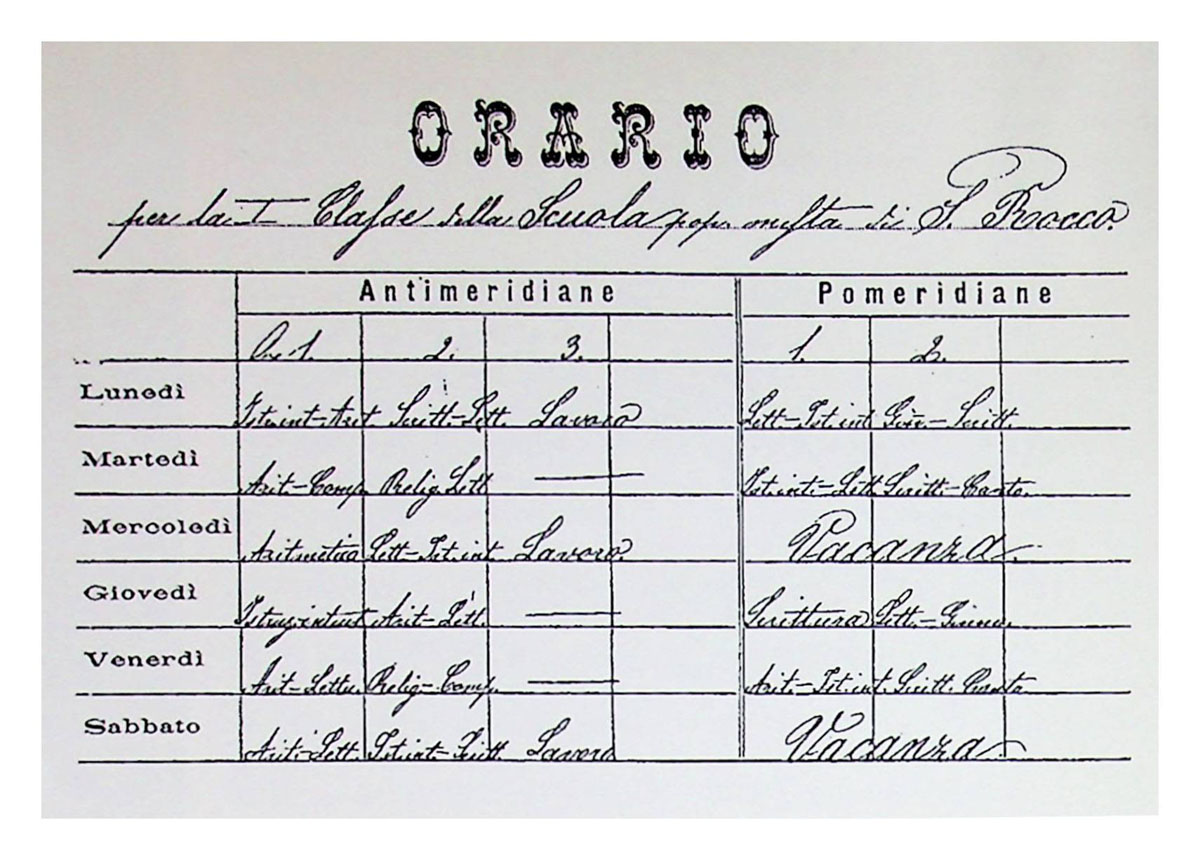 ORARIO
per la I Classe della Scuola pop. mista di S. Rocco.
Antimeridiane Pomeridiane
Ore 1. 2. 3. 1. 2.
Lunedì Ist. int-Arit Scritt.-Lett. Lavoro Lett-Ist. int Ginn.-Scritt.
Martedì Arit-Comp. Relig. Lett — Ist. int.-Lett Scritt-Canto.
Mercoledì Aritmetica Lett-Ist. int Lavoro Vacanza
Giovedì Istruz. intuit Arit-Lett. — Scrittura Lett.-Ginn.
Venerdì Arit-Lettu. Relig-Comp. — Arit.-Ist. int. Scritt. Canto
Sabbato Arit-Lett. Ist. int-Scritt. Lavoro Vacanza